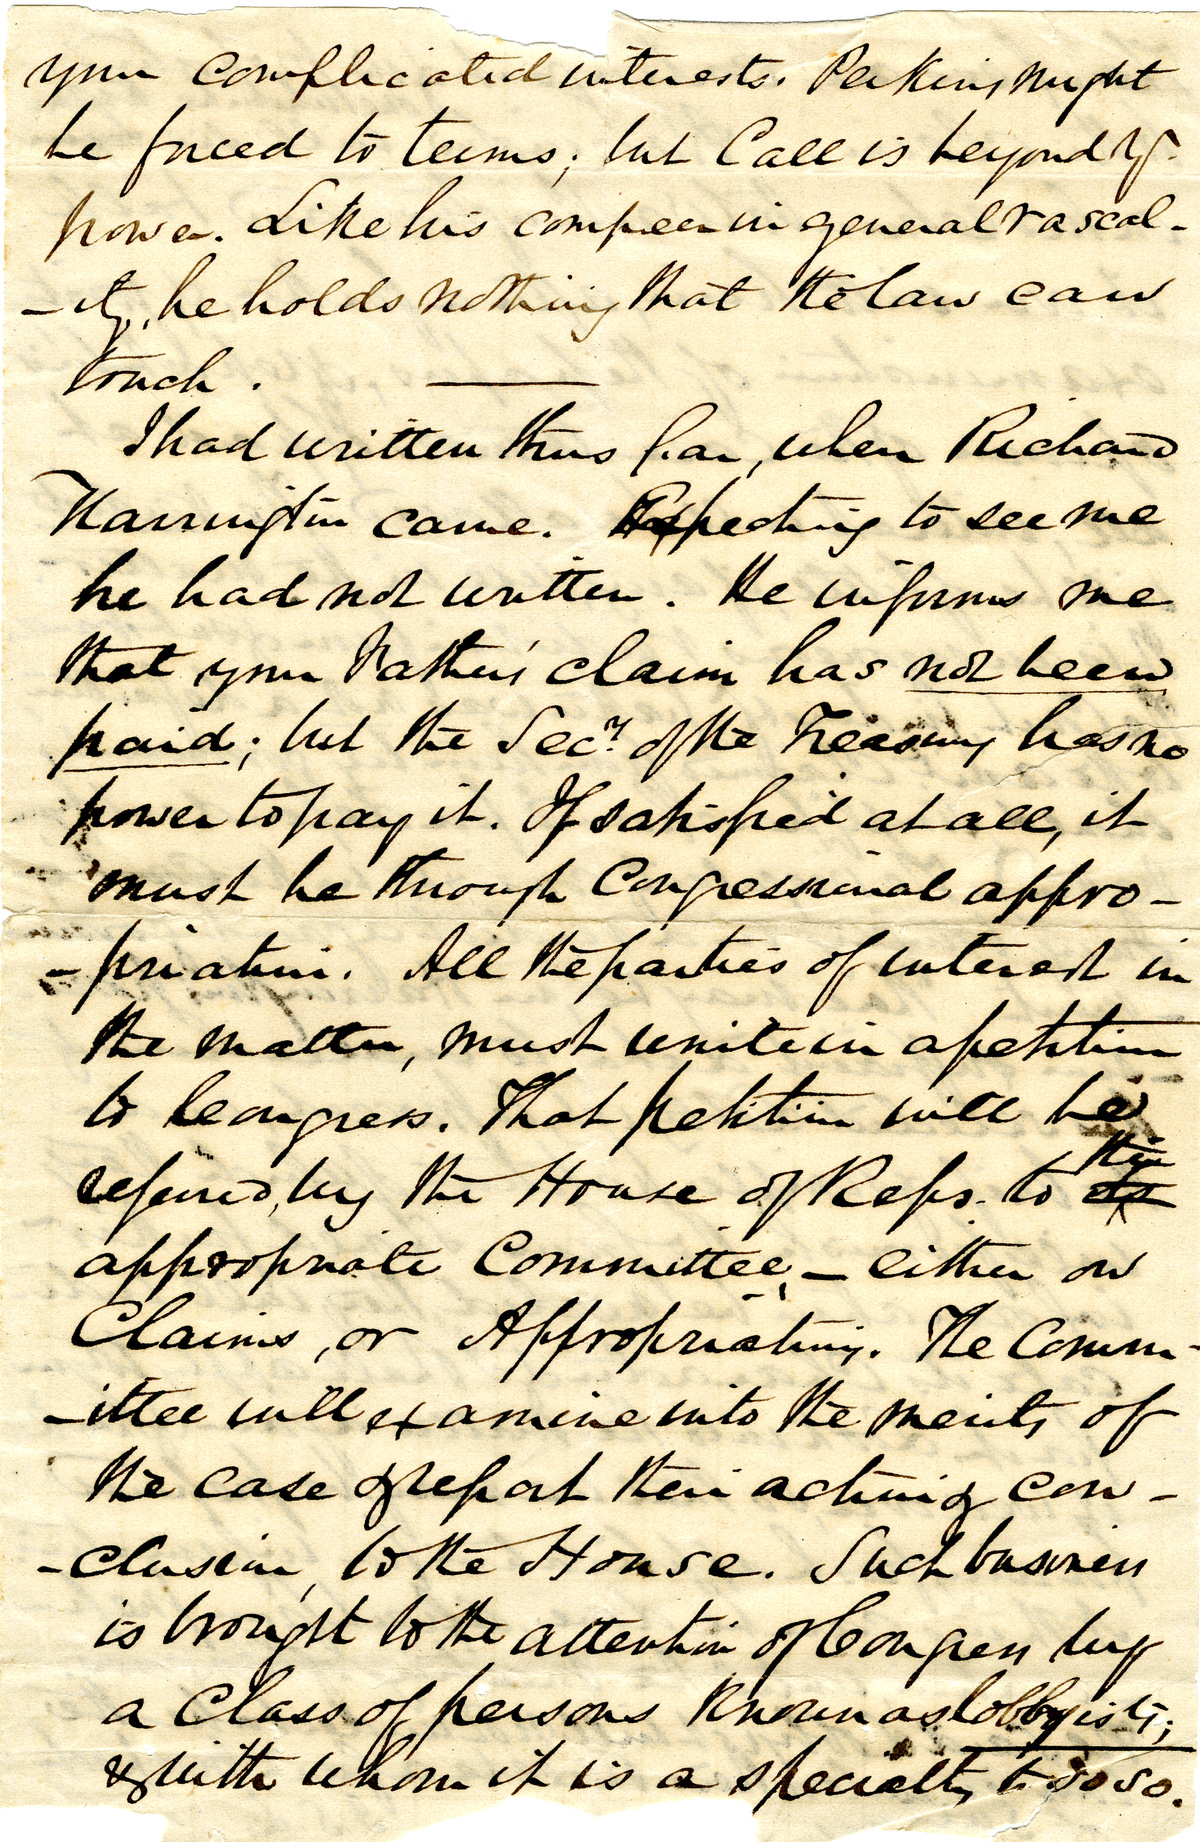 your complicated interests. Perkins might
be forced to terms; but Call is beyond yr.
power. Like his compeer in general rascal-
-ity, he holds nothing that the law can
touch.
I had written thus far, when Richard
Harrington came. Expecting to see me
he had not written. He informs me
that your Father's claim has not been
paid; but the Secy. of the Treasury has no
power to pay it. If satisfied at all, it
must be through Congressional appro-
-priation. All the parties of interest in
the matter, must unite in a petition
to Congress. That petition will be
referred, by the House of Reps. to the
appropriate Committee, - either on
Claims, or Appropriations. The Comm-
-ittee will examine into the merits of
the case & report their action & con-
-clusion, to the House. Such business
is brought to the attention of Congress by
a class of persons known as lobbyists;
& with whom it is a specialty to do so.